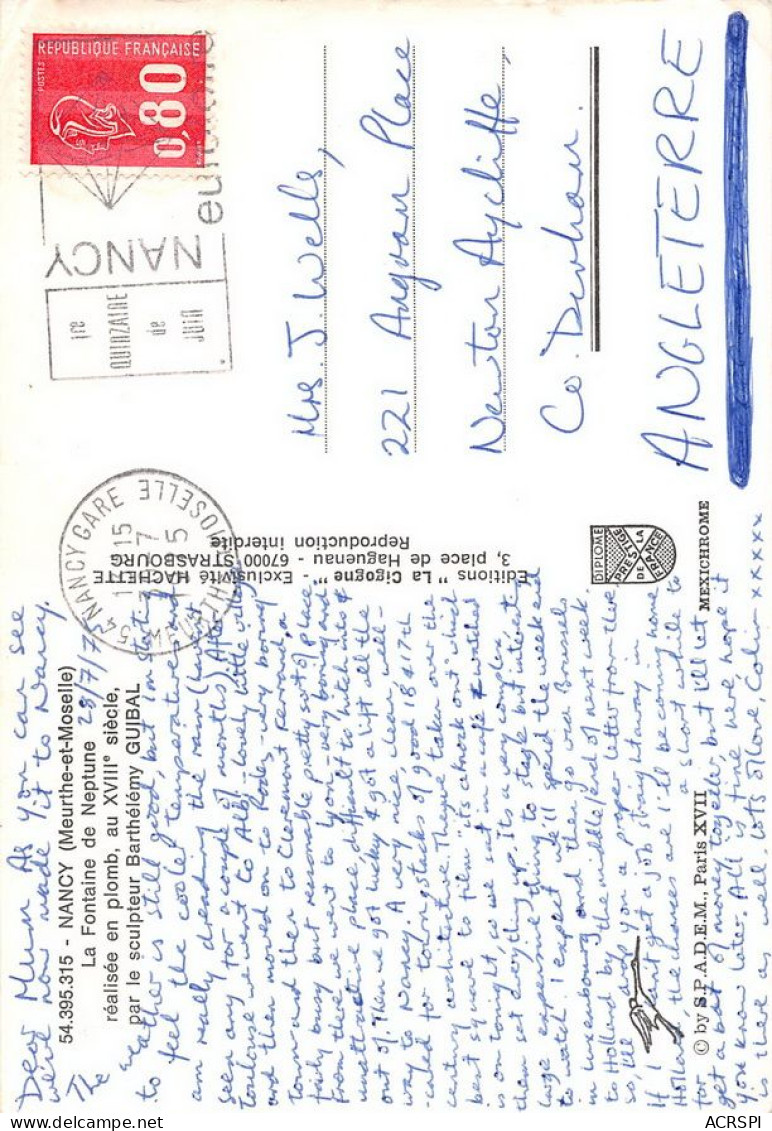 REPUBLIQUE FRANÇAISE
POSTES
0,80
NANCY
1re
QUINZAINE
de
JUIN
54 NANCY GARE
MEURTHE MOSELLE
Mrs J. Wells,
221 Place
Newton Aycliffe,
Co. Durham.
ANGLETERRE
Editions "La Cigogne" - Exclusivité HACHETTE
3, place de Haguenau - 67000 STRASBOURG
Reproduction interdite
DIPLOME
PRESTIGE
DE LA
FRANCE
MEXICHROME
54.395.315 - NANCY (Meurthe-et-Moselle)
La Fontaine de Neptune
réalisée en plomb, au XVIIIe siècle,
par le sculpteur Barthélémy GUIBAL
© by S.P.A.D.E.M., Paris XVII
28/7/7
Dear Mum As you can see
we've now made it to Nancy.
The
weather is still good, but I'm starting
to feel the cooler temperature and
am really dreading the rain (haven't
seen any for a couple of months) After
Toulouse we went to Albi - lovely little village
and then moved on to Rodez - very boring
town and then to Clermont Ferrand, a
fairly busy but reasonable pretty sort of place
From there we went to Lyon - very boring and
unattractive place, difficult to hitch into &
out of. Then we got lucky & got a lift all the
way to Nancy. A very nice, clean well-
cared for town, stacks of good 18 & 17th
century architecture. They've taken over the
best square to film "its a knock out" which
is on tonight, so we sat in a café & watched
them set everything up. Its a very complex
large expensive thing to stage but interesting
to watch. I expect we'll spend the weekend
in Luxembourg and then go via Brussels
to Holland by the middle/end of next week.
so, I'll drop you a proper letter from there.
If I don't get a job straightaway in
Holland, the chances are I'll be coming home
for a short while to
get a bit of money together but I'll let
you know later. All is fine here, hope it
is there as well, lots of love, Colin xxxxx
ACRSPI